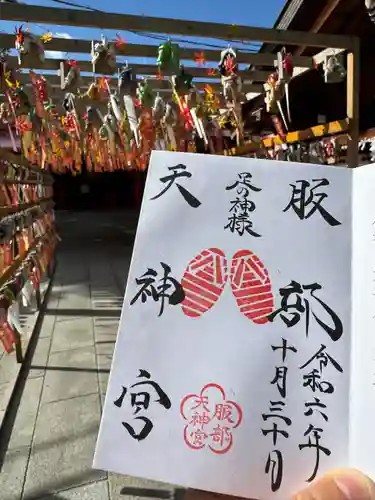 服部
令和六年
十月三十日
足の神様
天神宮
服部
天神宮